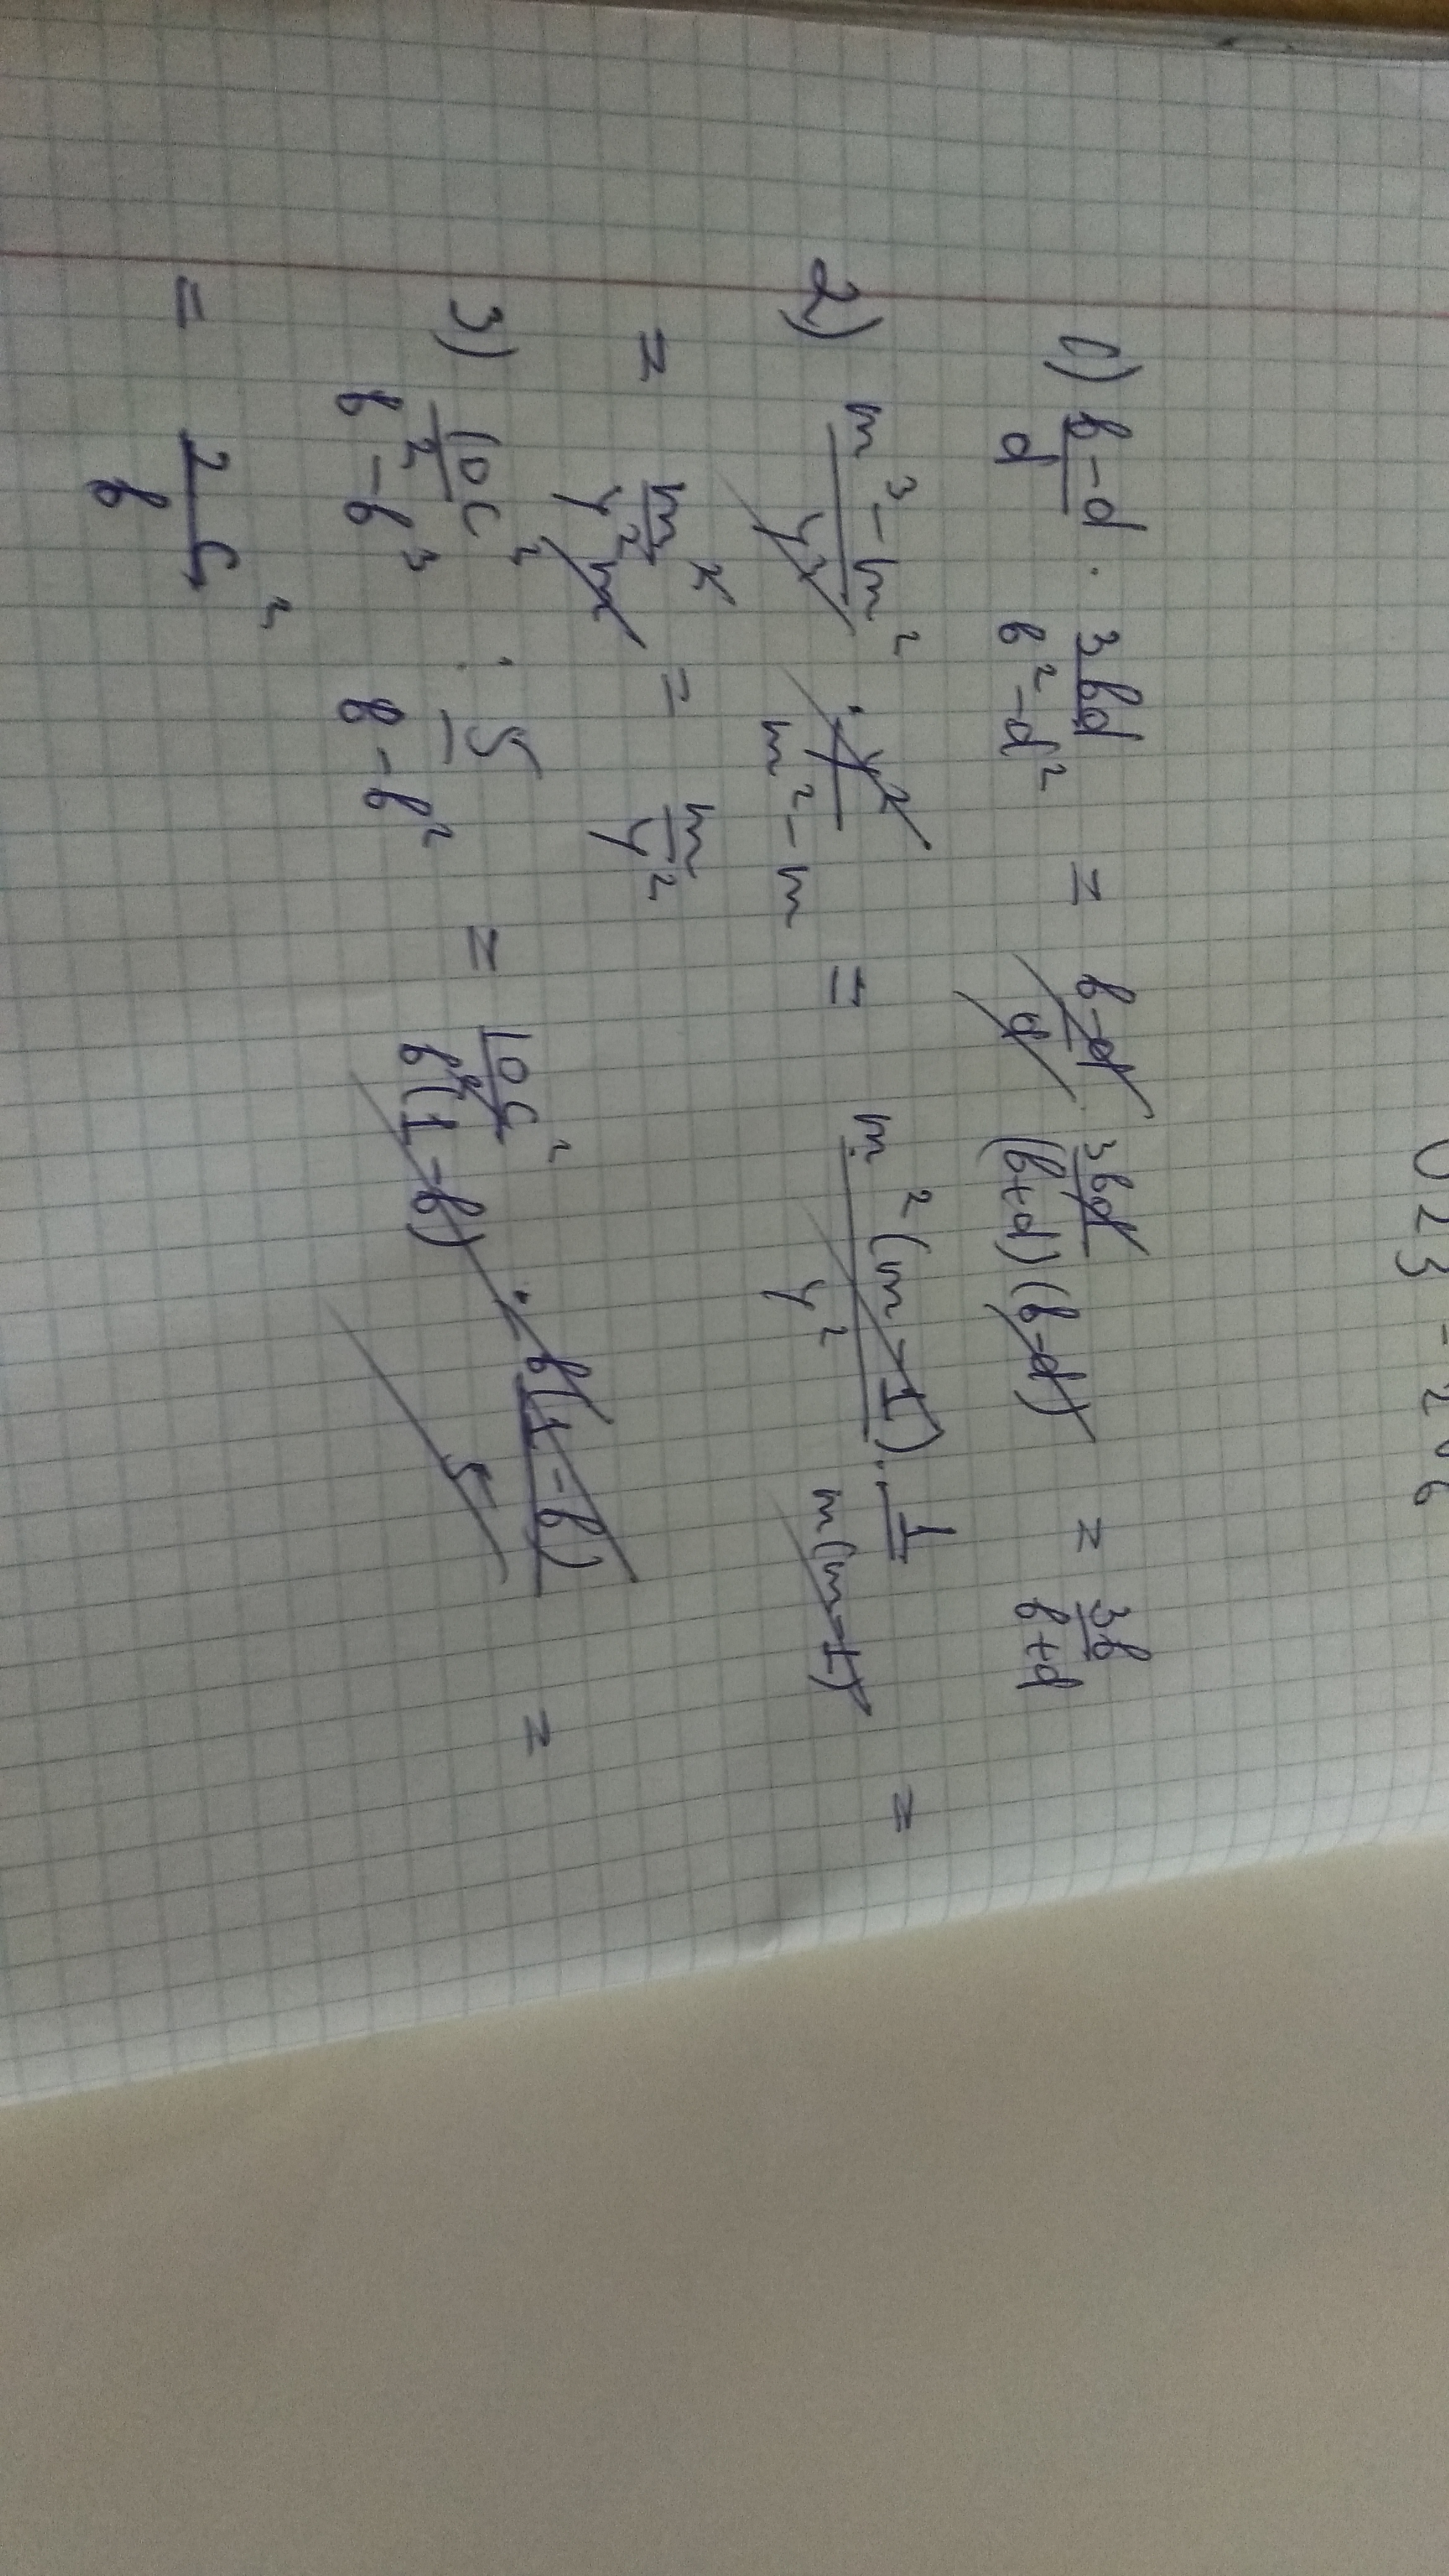 023 - 206
1) b-d/d · 3bd/b²-d² = b-d/d · 3bd/(b+d)(b-d) = 3b/b+d
2) m³-m²/y² · y²/m²-m = m²(m-1)/y² · 1/m(m-1) =
= m²/y²m = m/y²
3) 10c²/b²-b³ : 5/b-b² = 10c²/b²(1-b) · b(1-b)/5 =
= 2c²/b